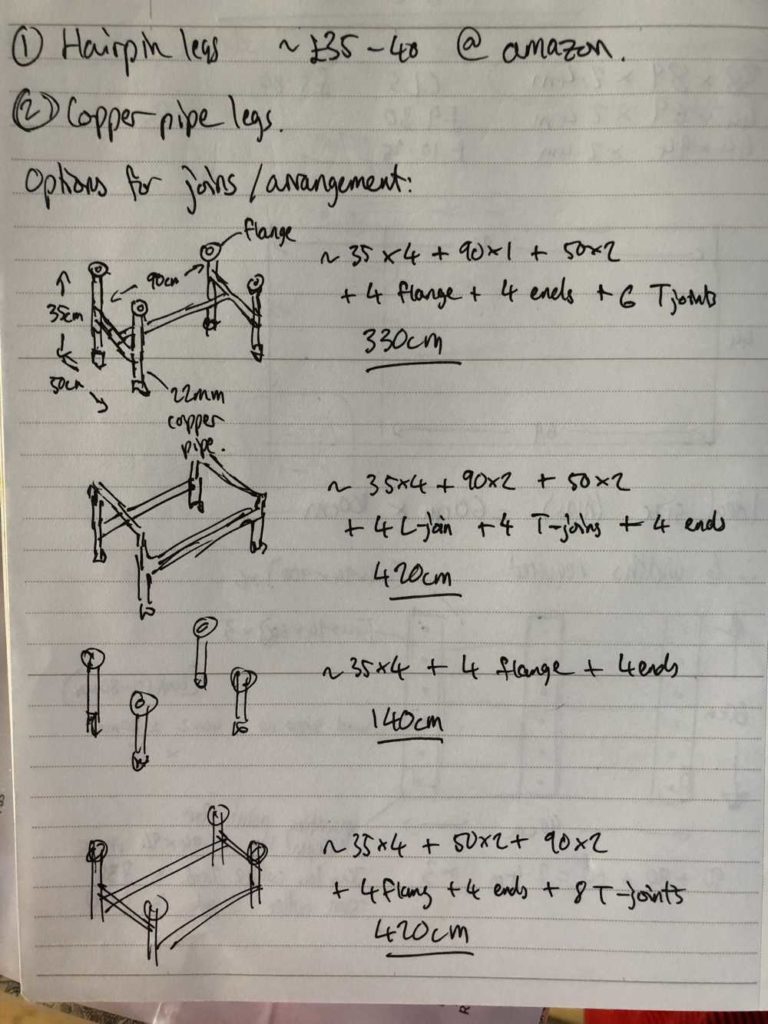 ① Hairpin legs ~ £35-40 @ amazon.
② Copper pipe legs.
Options for joins / arrangement:
flange
90cm
35cm
50cm
22mm
copper
pipe.
~ 35×4 + 90×1 + 50×2
+ 4 flange + 4 ends + 6 T joints
330cm
~ 35×4 + 90×2 + 50×2
+ 4 L-join + 4 T-joins + 4 ends
420cm
~ 35×4 + 4 flange + 4 ends
140cm
~ 35×4 + 50×2 + 90×2
+ 4 flang + 4 ends + 8 T-joints
420cm